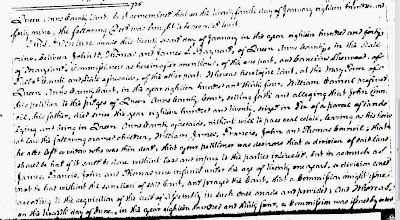 776
Queen Anns County Court. be it remembered that on the twenty fourth day of January eighteen hundred and
forty nine, the following Deed was brought to be recorded, to wit.
This Indenture made this twenty second day of January in the year eighteen hundred and forty
nine, between John B. Thomas and James T. Earpent, of Queen Anns County, in the State
of Maryland, Commissioners as hereinafter mentioned, of the one part, and of
Talbot County and State aforesaid, of the other part. Whereas heretofore at the May Term of
Queen Anns County Court, in the year eighteen hundred and thirty four, William Council preferred
his petition to the judges of Queen Anns County Court, setting forth and alleging that John Coun-
cil, his father, died since the year eighteen hundred and twenty, seized in fee of a parcel of lands
lying and being in Queen Anns County aforesaid, without will to pass real estate, leaving as his heirs
at law the following named children, William, James, Francis, John and Thomas Council; that
he also left a widow who was then dead; that your petitioner was desirous that a division of said land
should be had if it could be done without loss and injury to the parties interested, but in as much as
James, Francis, John and Thomas were infants under the age of twenty one years, a division could
not be had without the sanction of said Court, and prayed the Court, that a Commission might issue
according to the requisition of the act of Assembly in such case made and provided; and Whereas,
on the fourth day of June, in the year eighteen hundred and thirty four, a commission was issued by order